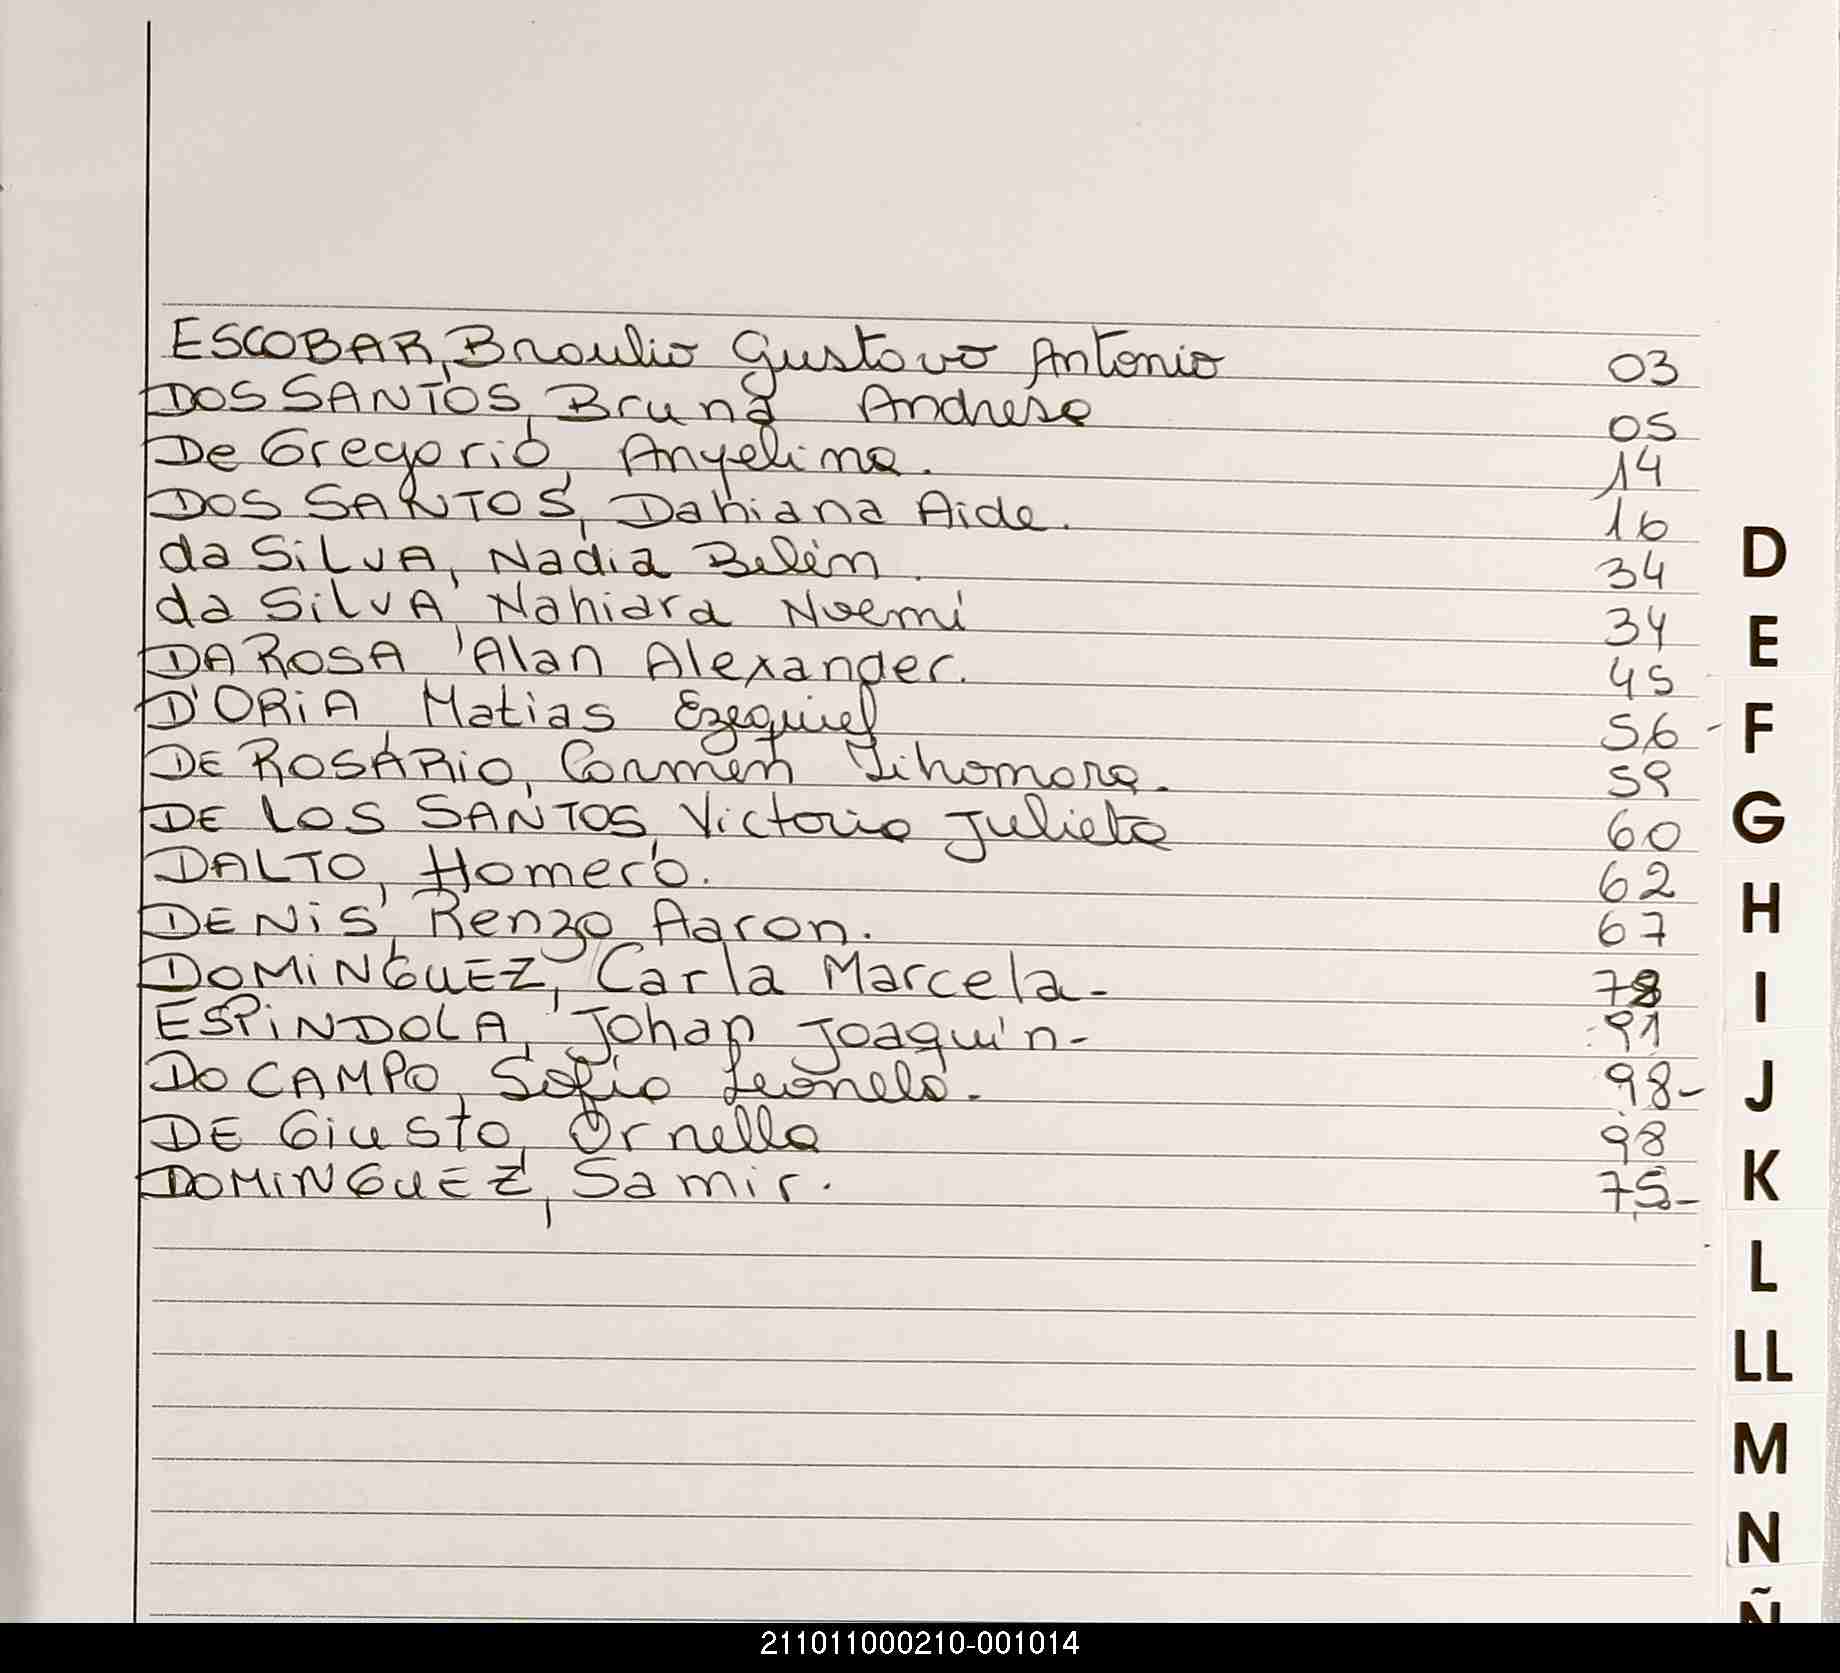 ESCOBAR, Braulio Gustavo Antonio 03
DOS SANTOS, Bruna Andrese 05
De Gregorio, Anyelina. 14
DOS SANTOS, Dahiana Aide. 16
da SiLVA, Nadia Belén. 34
da SiLVA, Nahiara Noemi 34
DA ROSA, Alan Alexander. 45
D'ORiA Matias Ezequiel 56 -
DE ROSARiO, Carmen 59
DE LOS SANTOS, Victoria Julieta 60
DALTO, Homero. 62
DENiS, Renzo Aaron. 67
DOMiNGUEZ, Carla Marcela- 78
ESPiNDOLA, Johan Joaquin- 91
DO CAMPO, Sofia Leonela. 98-
DE Giusto, Ornella 98
DOMiNGUEZ, Samir. 75-
D
E
F
G
H
I
J
K
L
LL
M
N
Ñ
211011000210-001014